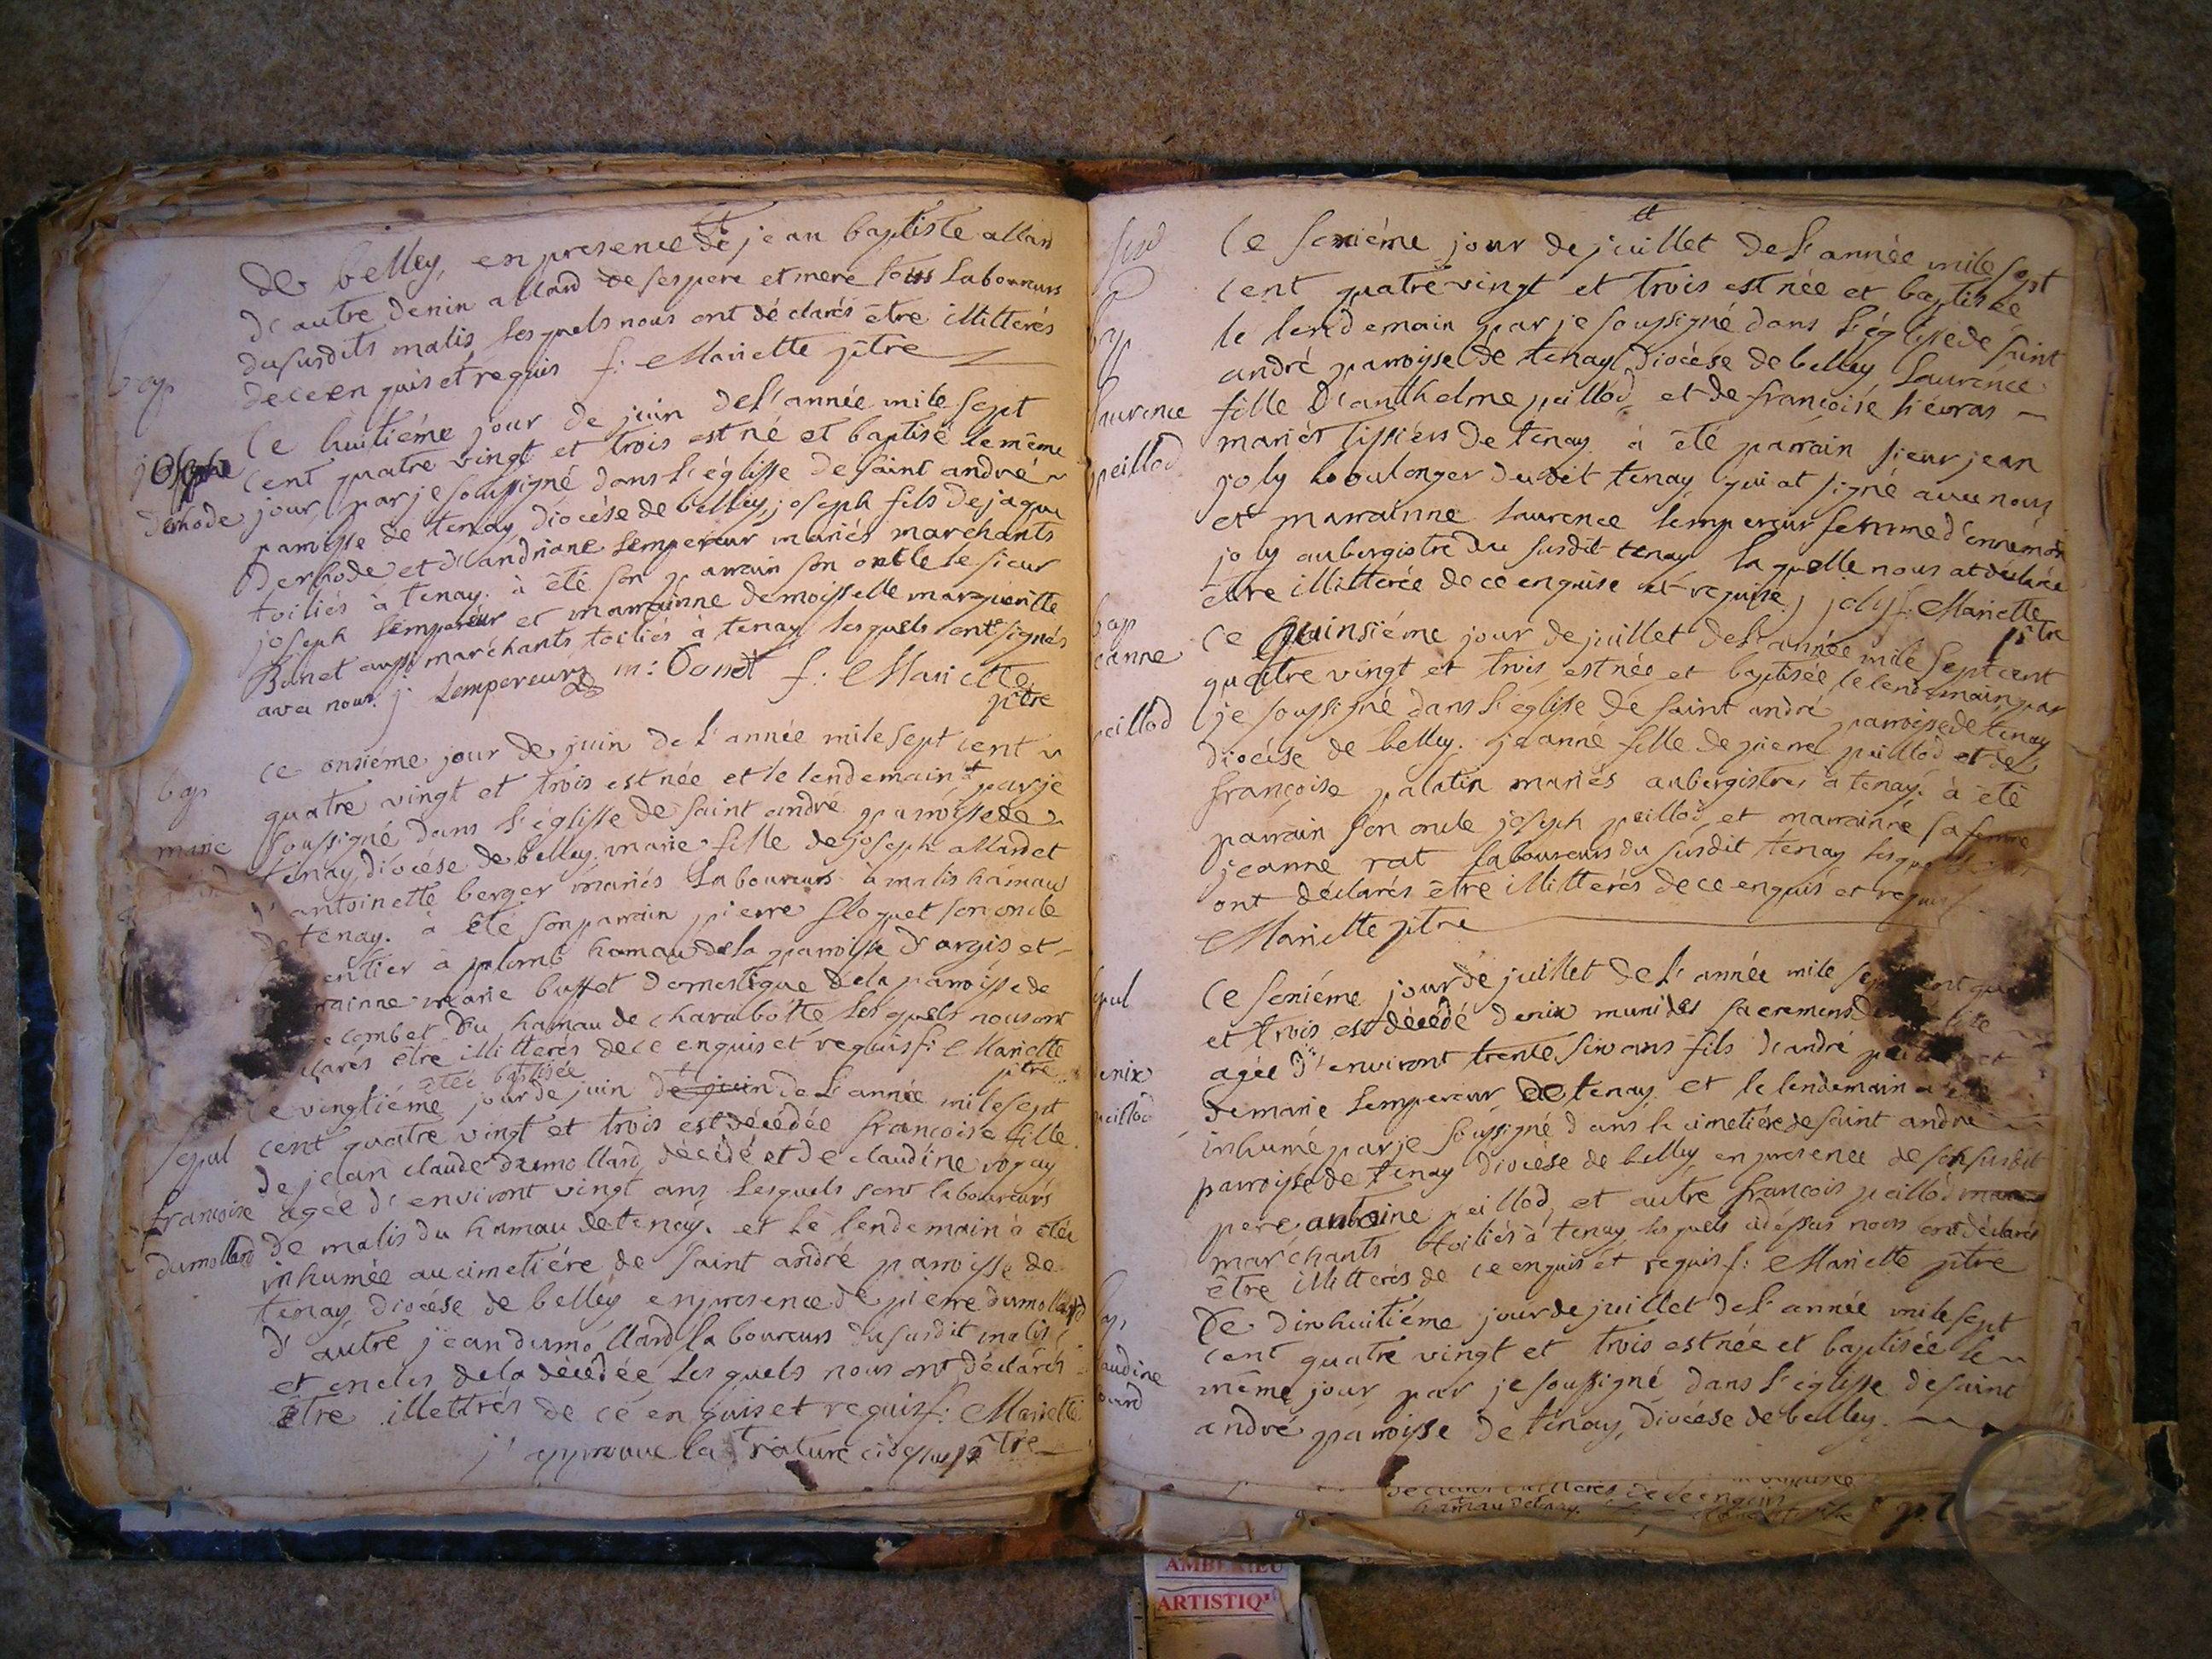 de belley, en presence de jean baptiste allard
d'autre denin allard de ses pere et mere tous Laboureurs
du susdits malis lesquels nous ont déclarés être illitterés
de ce en quis et requis f: Mariette ptre
bap
joseph
derhode
Ce huitiéme jour de juin de l'année mile sept
cent quatre vingt et trois est né et baptisé le même
jour par je soussigné dans l'églisse de saint andré
paroisse de tenay diocése de belley, joseph fils de jaque
derhode et d'andriane Lempereur mariés marchants
toiliés à tenay. à été son parrain son oncle le sieur
joseph Lempereur et marrainne demoisselle margueritte
Bonet aussi marchants toiliés à tenay lesquels ont signés
avec nous. j Lempereur m: Bonet f: Mariette
ptre
bap
marie
Ce onsiéme jour de juin de l'année mile sept cent
quatre vingt et trois est née et le lendemain par je
soussigné dans l'églisse de saint andré paroisse de
tenay diocése de belley, marie fille de joseph allard et
d'antoinette berger mariés Laboureurs à malis hamau
de tenay. à été son parrain pierre floquet son oncle
entier à plomb hamau de la paroisse d'argis et
rainne marie buffet domestique de la paroisse de
combet du hamau de charabotte lesquels nous ont
clarés être illitterés de ce enquis et requis f: Mariette
ptre
étée baptisée
sepul
francoise
dumollard
Ce vingtiéme jour de juin de juin de l'année mile sept
cent quatre vingt et trois est décédée francoise fille
de jean claude dumollard décédé et de claudine rogay
agée d'environt vingt ans lesquels sont laboureurs
de malis du hamau de tenay. et le lendemain à étée
inhumée au cimetiére de saint andré paroisse de
tenay diocése de belley en presence de pierre dumollard
d'autre jean dumollard laboureurs du susdit malis
et oncles de la décédée lesquels nous ont déclarés
être illettrés de cé en quis et requis f: Mariette
j'approuve la rature ci dessus ptre
bap
laurence
peillod
Ce seziéme jour de juillet de l'année mile sept
cent quatre vingt et trois est née et baptisée
le lendemain par je soussigné dans l'églisse de saint
andré paroisse de tenay diocése de belley Laurence
fille d'anthelme peillod et de francoise liévras
mariés tissiérs de tenay. à été parrain sieur jean
joly boulonger du dit tenay qui at signé avec nous
et marrainne laurence lempereur femme d'ennemon
joly aubergistre du susdit tenay laquelle nous at déclarée
être illitterée de ce enquise et requise j joly f: Mariette
ptre
bap
eanne
peillod
Ce quinsiéme jour de juillet de l'année mile sept cent
quatre vingt et trois est née et baptisée le lendemain par
je soussigné dans l'églisse de saint andré paroisse de tenay
diocése de belley. jeanne fille de pierre peillod et de
françoise palatin mariés aubergistres à tenay. à été
parrain son oncle joseph peillod et marrainne sa femme
jeanne rat laboureurs du susdit tenay
ont déclarés être illitterés de ce enquis et requis
Mariette ptre
epul
enix
peillod
Ce seniéme jour de juillet de l'année mile
et trois est décédé denix muni des sacremens
agée d'environt trente six ans fils d'andré
de marie Lempereur de tenay. et le lendemain à
inhumé par je soussigné dans le cimetiére de saint andré
paroisse de tenay diocése de belley en presence de son susdit
pere antoine peillod, et autre francois peillod
marchants toiliés à tenay lesquels cidéssus nous ont déclarés
être illitterés de ce enquis et requis f: Mariette ptre
audine
De dixhuitiéme jour de juillet de l'année mile sept
cent quatre vingt et trois est née et baptisée le
même jour par je soussigné dans l'églisse de saint
andré paroisse de tenay, diocése de belley.
AMBERIEU
ARTISTIQ